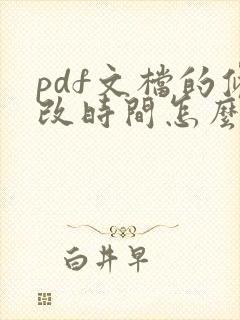 pdf文檔的修
改時間怎麼
白井早